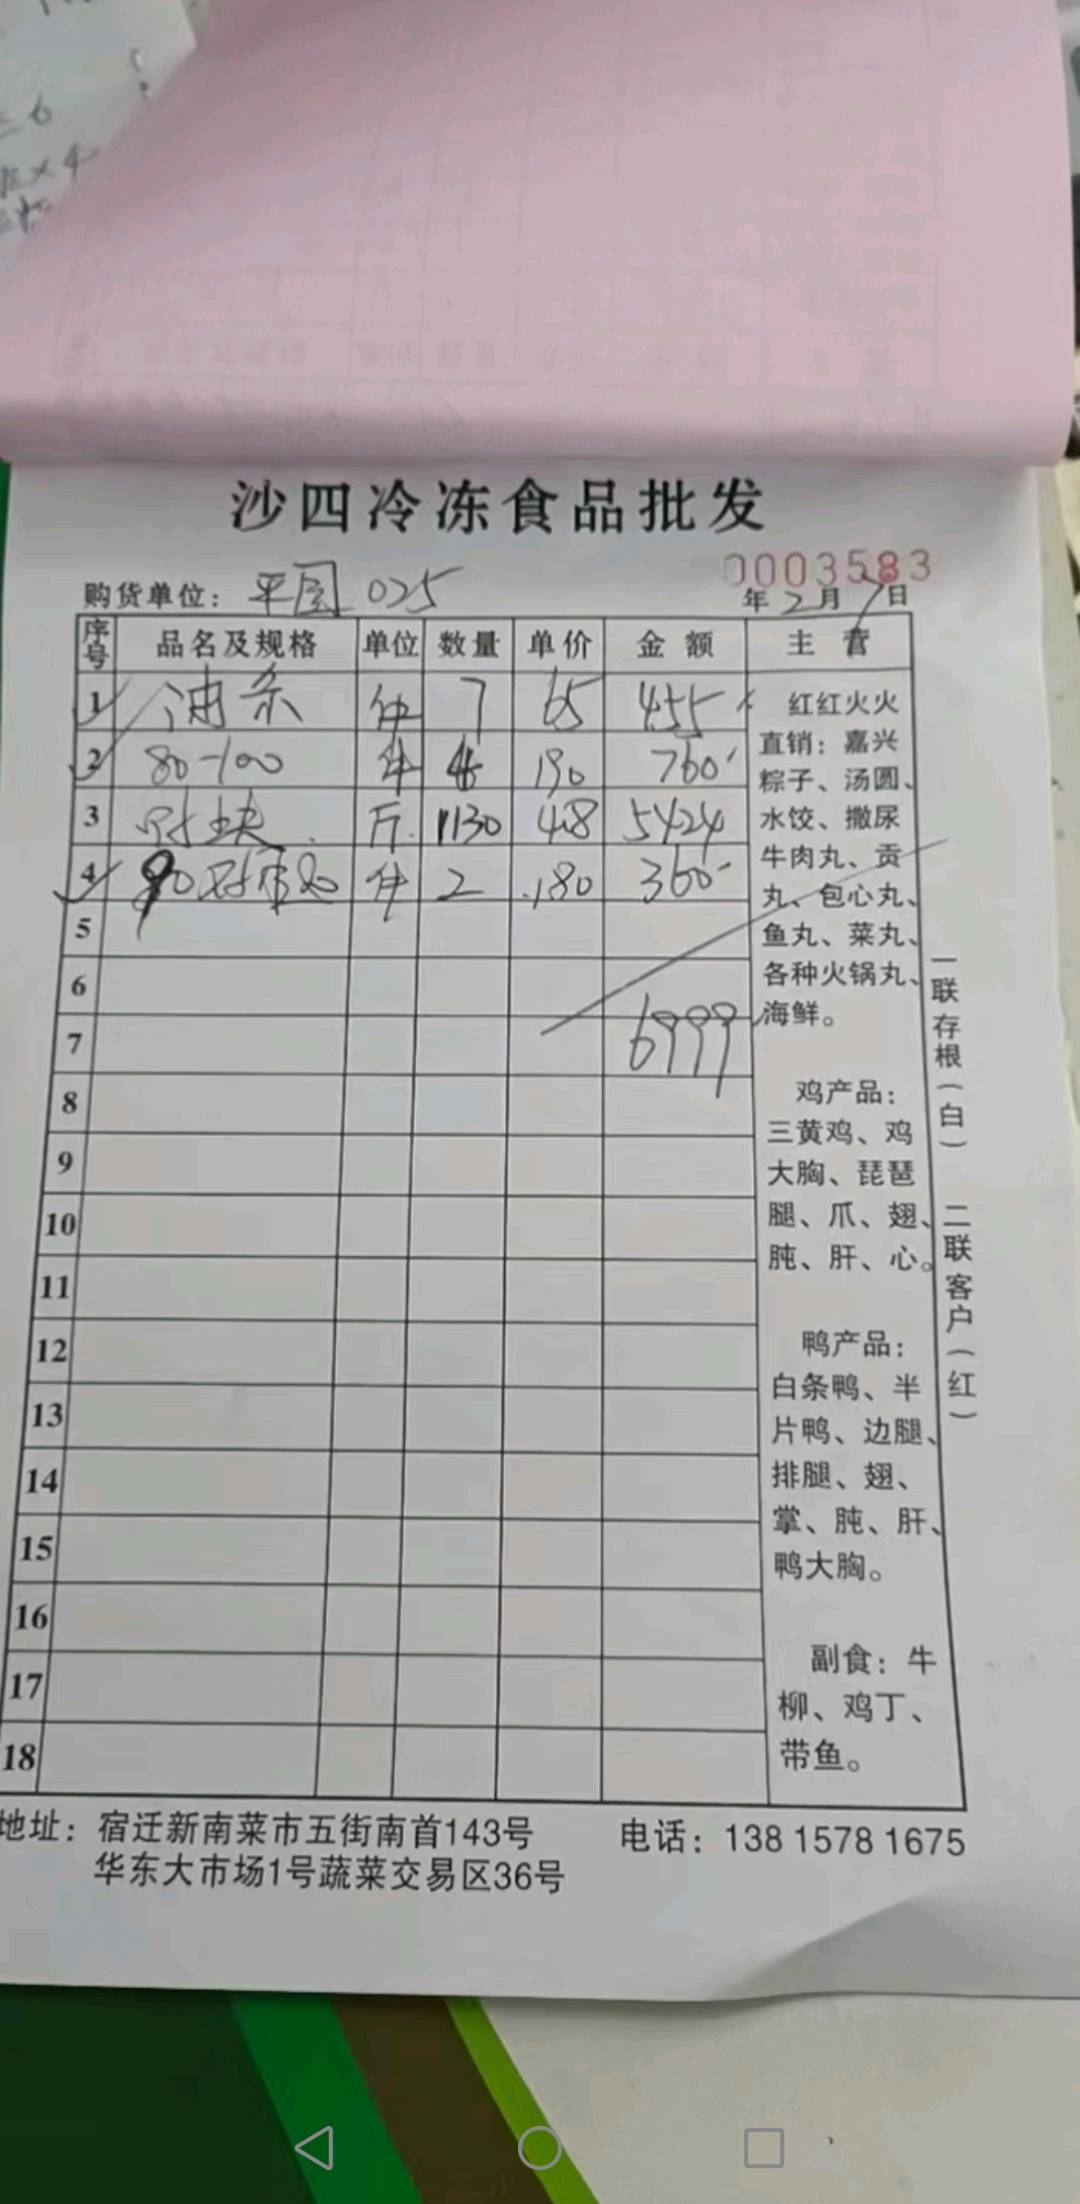 沙四冷冻食品批发
0003583
购货单位: 平园 025 年2月7日
序号 品名及规格 单位 数量 单价 金额 主营
1 油条 件 7 65 455
2 80-100 件 4 190 760
3 块 斤 1130 4.8 5424
4 90 件 2 180 360
5
6
7 6999
8
9
10
11
12
13
14
15
16
17
18
红红火火
直销：嘉兴
粽子、汤圆、
水饺、撒尿
牛肉丸、贡
丸、包心丸、
鱼丸、菜丸、
各种火锅丸、
海鲜。
鸡产品：
三黄鸡、鸡
大胸、琵琶
腿、爪、翅、
肫、肝、心。
鸭产品：
白条鸭、半
片鸭、边腿、
排腿、翅、
掌、肫、肝、
鸭大胸。
副食：牛
柳、鸡丁、
带鱼。
一联存根(白) 二联客户(红)
地址：宿迁新南菜市五街南首143号 电话：138 1578 1675
华东大市场1号蔬菜交易区36号